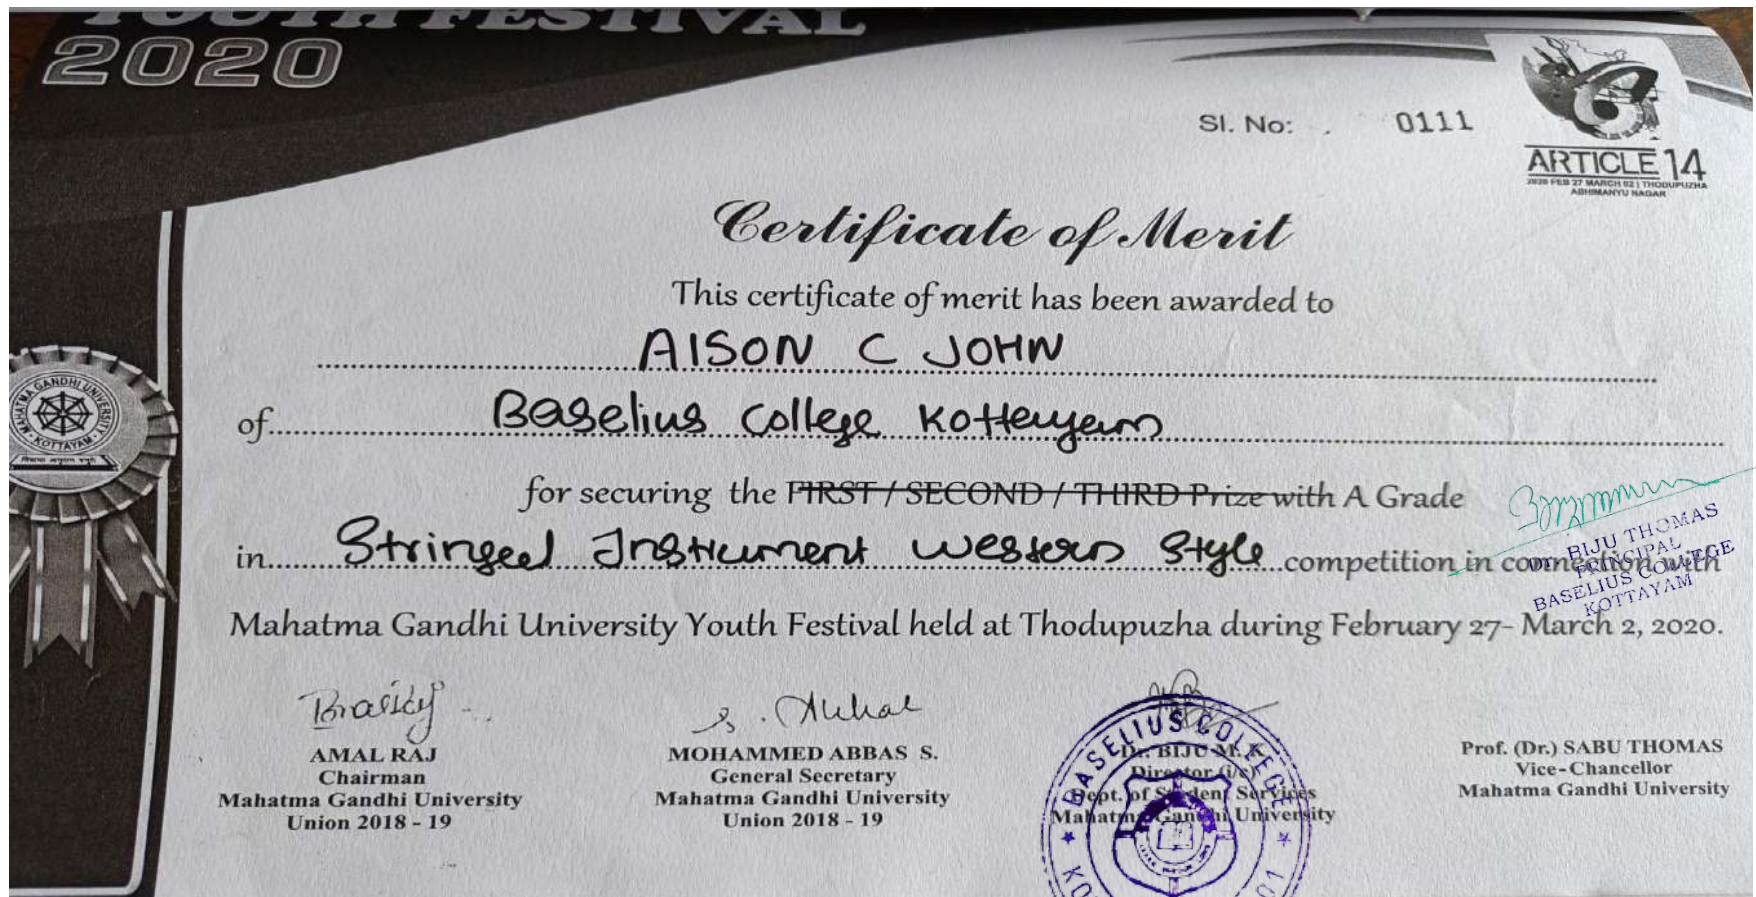 YOUTH FESTIVAL
2020
Sl. No: . 0111
ARTICLE 14
2020 FEB 27 MARCH 02 | THODUPUZHA
ABHIMANYU NAGAR
Certificate of Merit
This certificate of merit has been awarded to
AISON C JOHN
of Baselius College Kottayam
for securing the FIRST / SECOND / THIRD Prize with A Grade
in Stringed Instrument Western Style competition in connection with
Mahatma Gandhi University Youth Festival held at Thodupuzha during February 27- March 2, 2020.
MAHATMA GANDHI UNIVERSITY
KOTTAYAM
BIJU THOMAS
PRINCIPAL
BASELIUS COLLEGE
KOTTAYAM
AMAL RAJ
Chairman
Mahatma Gandhi University
Union 2018 - 19
MOHAMMED ABBAS S.
General Secretary
Mahatma Gandhi University
Union 2018 - 19
Dr. BIJU M.K.
Director (i/c)
Dept. of Student Services
Mahatma Gandhi University
BASELIUS COLLEGE
Prof. (Dr.) SABU THOMAS
Vice-Chancellor
Mahatma Gandhi University